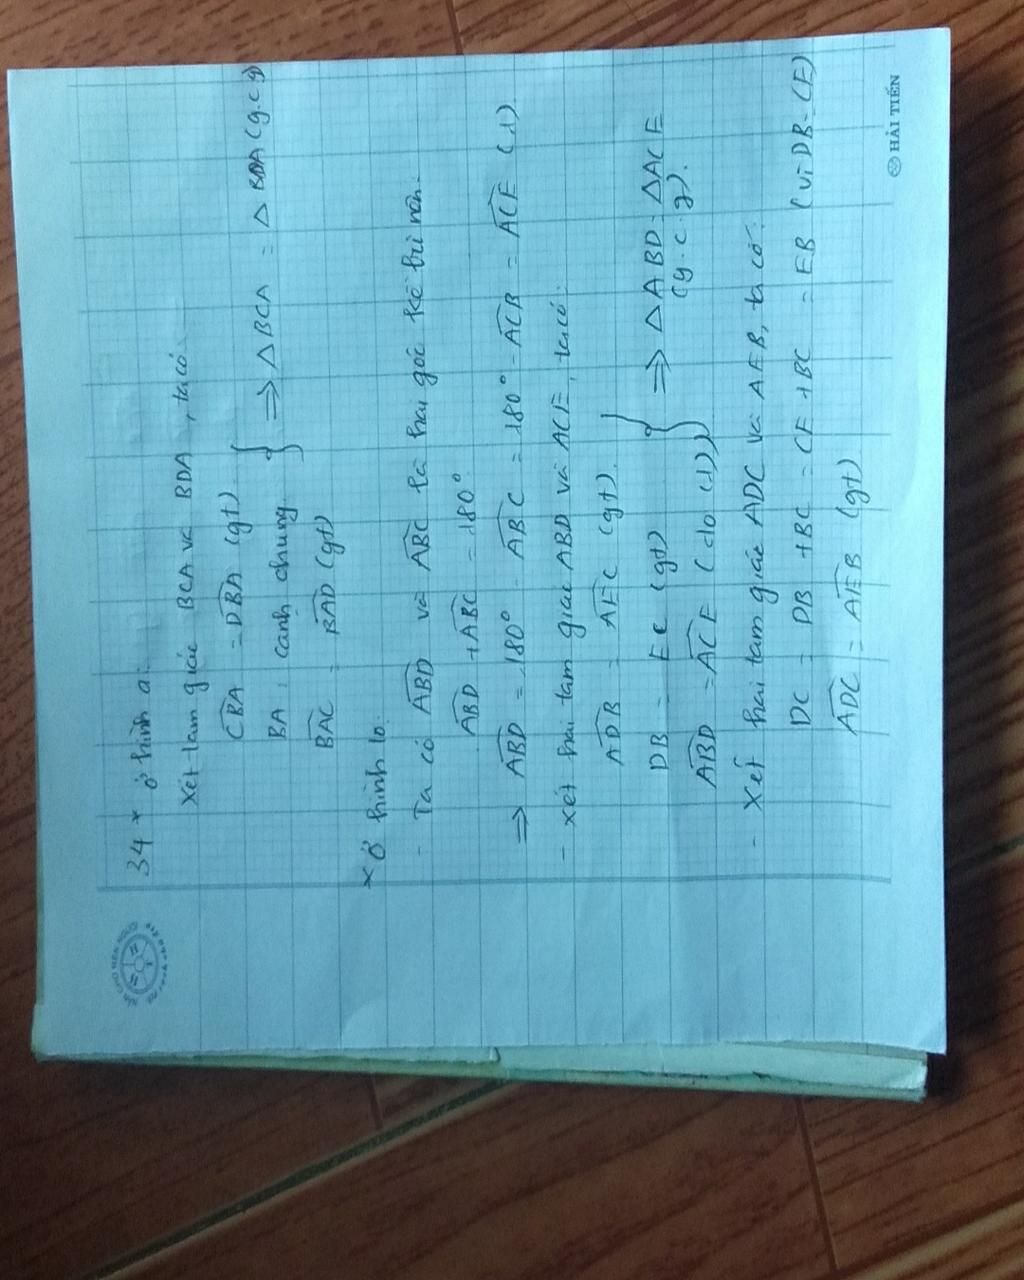 34 * ở hình a:
Xét tam giác BCA và BDA, ta có:
CBA = DBA (gt)
BA: cạnh chung. } => Δ BCA = Δ BDA (g.c.g)
BAC = BAD (gt)
* Ở hình b:
- Ta có ABD và ABC là hai góc kề bù nên:
ABD + ABC = 180°
=> ABD = 180° - ABC = 180° - ACB = ACE (1)
- Xét hai tam giác ABD và ACE, ta có:
ADB = AEC (gt).
DB = EC (gt) } => Δ ABD = Δ ACE
(g.c.g).
ABD = ACE (do (1))
- Xét hai tam giác ADC và AEB, ta có:
DC = DB + BC = CE + BC = EB (vì DB = CE)
ADC = AEB (gt)
HẢI TIẾN